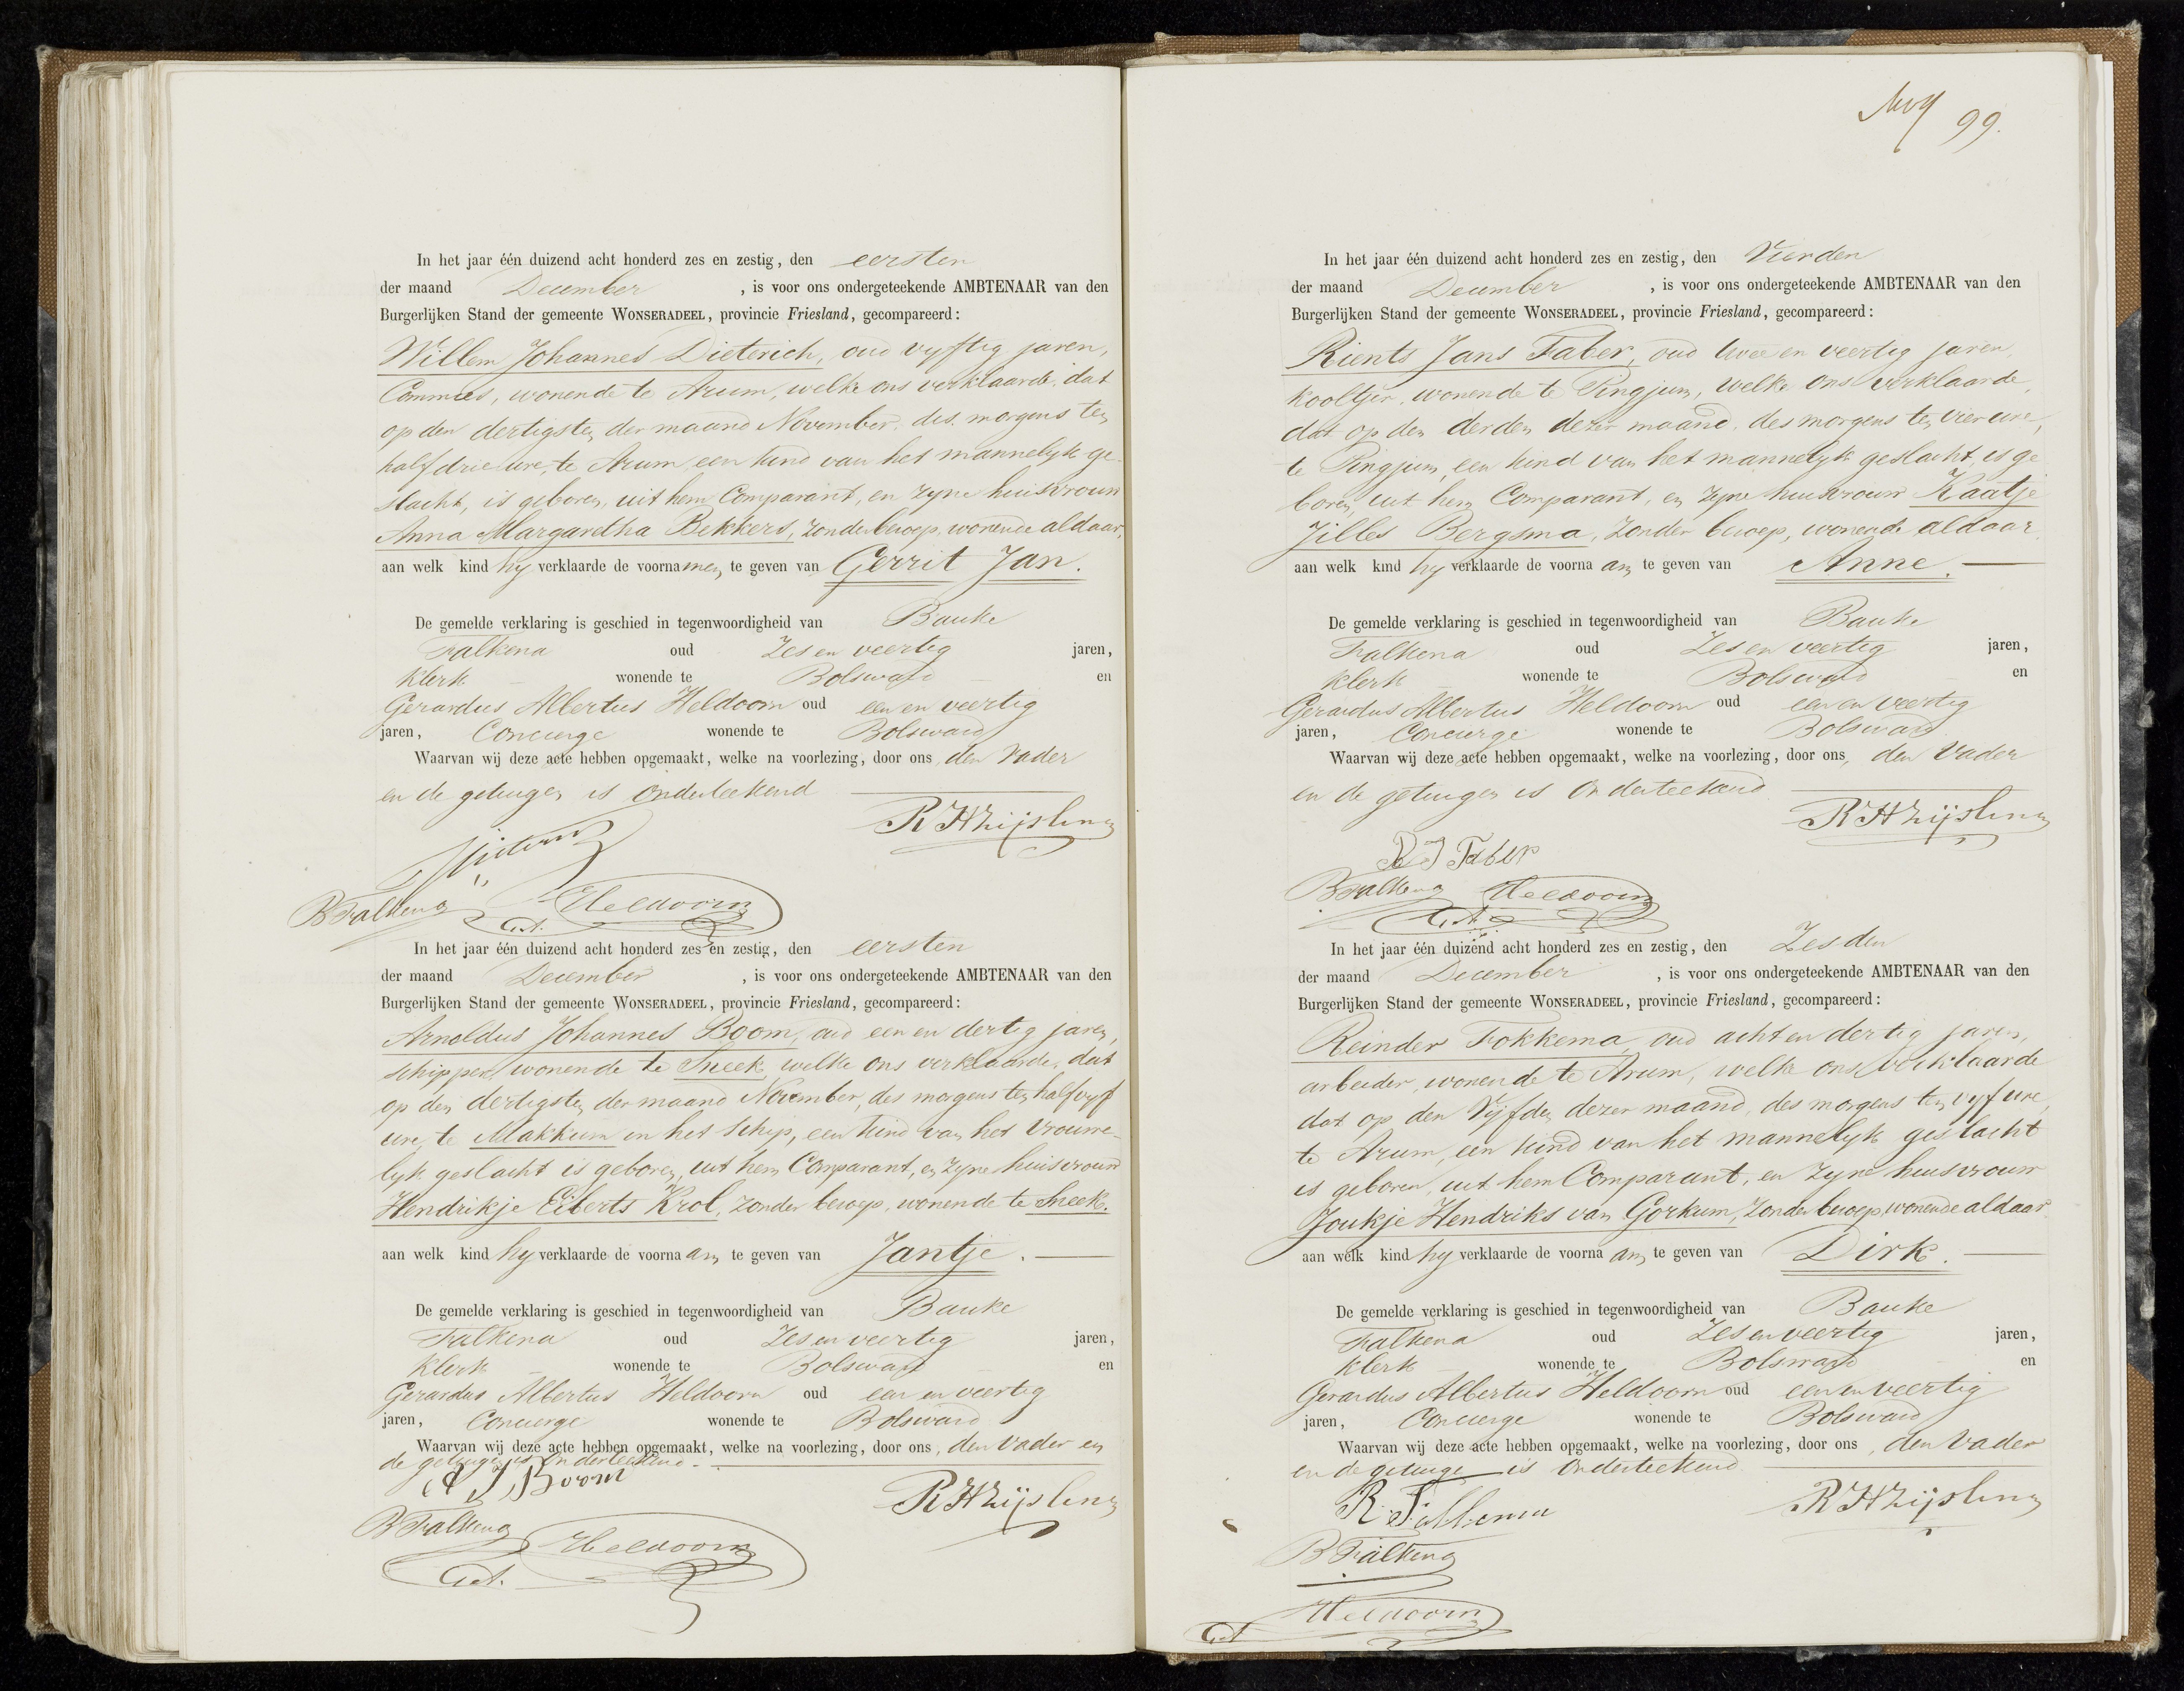 In het jaar één duizend acht honderd zes en zestig, den eersten
der maand December, is voor ons ondergeteekende AMBTENAAR van den
Burgerlijken Stand der gemeente WONSERADEEL, provincie Friesland, gecompareerd:
Willem Johannes Dieterich, oud vyftig jaren,
Commies, wonende te Arum, welke ons verklaarde, dat
op den dertigsten der maand November, des morgens ten
half drie ure, te Arum, een kind van het mannelyk ge-
slacht, is geboren, uit hem Comparant, en zyne huisvrouw
Anna Margaretha Bekkers, zonder beroep, wonende aldaar,
aan welk kind hy verklaarde de voornamen te geven van Gerrit Jan.
De gemelde verklaring is geschied in tegenwoordigheid van Bauke
Falkena oud Zes en veertig jaren,
Klerk wonende te Bolsward en
Gerardus Albertus Heldoorn oud een en veertig
jaren, Concierge wonende te Bolsward
Waarvan wij deze acte hebben opgemaakt, welke na voorlezing, door ons, den Vader
en de getuigen is onderteekend
RHZijsling
BFalkena GA Heldoorn
In het jaar één duizend acht honderd zes en zestig, den eersten
der maand December, is voor ons ondergeteekende AMBTENAAR van den
Burgerlijken Stand der gemeente WONSERADEEL, provincie Friesland, gecompareerd:
Arnoldus Johannes Boom, oud een en dertig jaren,
schipper, wonende te Sneek, welke ons verklaarde, dat
op den dertigsten der maand November, des morgens ten half vyf
ure, te Makkum in het Schip, een kind van het Vrouwe-
lyk geslacht is geboren, uit hem Comparant, en zyne huisvrouw
Hendrikje Eiberts Krol, zonder beroep, wonende te Sneek.
aan welk kind hy verklaarde de voornaam te geven van Jantje.
De gemelde verklaring is geschied in tegenwoordigheid van Bauke
Falkena oud Zes en veertig jaren,
Klerk wonende te Bolsward en
Gerardus Albertus Heldoorn oud een en veertig
jaren, Concierge wonende te Bolsward
Waarvan wij deze acte hebben opgemaakt, welke na voorlezing, door ons, den Vader en
de getuigen is onderteekend.
A J Boom
RHZijsling
BFalkena
GA Heldoorn
99.
In het jaar één duizend acht honderd zes en zestig, den Vierden
der maand December, is voor ons ondergeteekende AMBTENAAR van den
Burgerlijken Stand der gemeente WONSERADEEL, provincie Friesland, gecompareerd:
Rients Jans Faber, oud twee en veertig jaren,
Kooltjer, wonende te Pingjum, welke ons verklaarde,
dat op den derden dezer maand, des morgens ten vier ure,
te Pingjum, een kind van het mannelyk geslacht, is ge
boren, uit hem Comparant, en zyne huisvrouw Kaatje
Jilles Bergsma, zonder beroep, wonende aldaar
aan welk kind hy verklaarde de voornaam te geven van Anne.
De gemelde verklaring is geschied in tegenwoordigheid van Bauke
Falkena oud Zes en veertig jaren,
Klerk wonende te Bolsward en
Gerardus Albertus Heldoorn oud een en veertig
jaren, Concierge wonende te Bolsward
Waarvan wij deze acte hebben opgemaakt, welke na voorlezing, door ons, den Vader
en de getuigen is onderteekend
RHZijsling
R J Faber
BFalkena GA Heldoorn
In het jaar één duizend acht honderd zes en zestig, den Zesden
der maand December, is voor ons ondergeteekende AMBTENAAR van den
Burgerlijken Stand der gemeente WONSERADEEL, provincie Friesland, gecompareerd:
Reinder Fokkema, oud acht en dertig jaren,
arbeider, wonende te Arum, welke ons verklaarde
dat op den Vijfden dezer maand, des morgens ten vyf ure,
te Arum, een kind van het mannelyk geslacht
is geboren, uit hem Comparant, en zyne huisvrouw
Joukje Hendriks van Gorkum, zonder beroep, wonende aldaar
aan welk kind hy verklaarde de voornaam te geven van Dirk.
De gemelde verklaring is geschied in tegenwoordigheid van Bauke
Falkena oud Zes en veertig jaren,
Klerk wonende te Bolsward en
Gerardus Albertus Heldoorn oud een en veertig
jaren, Concierge wonende te Bolsward
Waarvan wij deze acte hebben opgemaakt, welke na voorlezing, door ons, den Vader
en de getuige is onderteekend
R. Fokkema
RHZijsling
BFalkena
GA Heldoorn